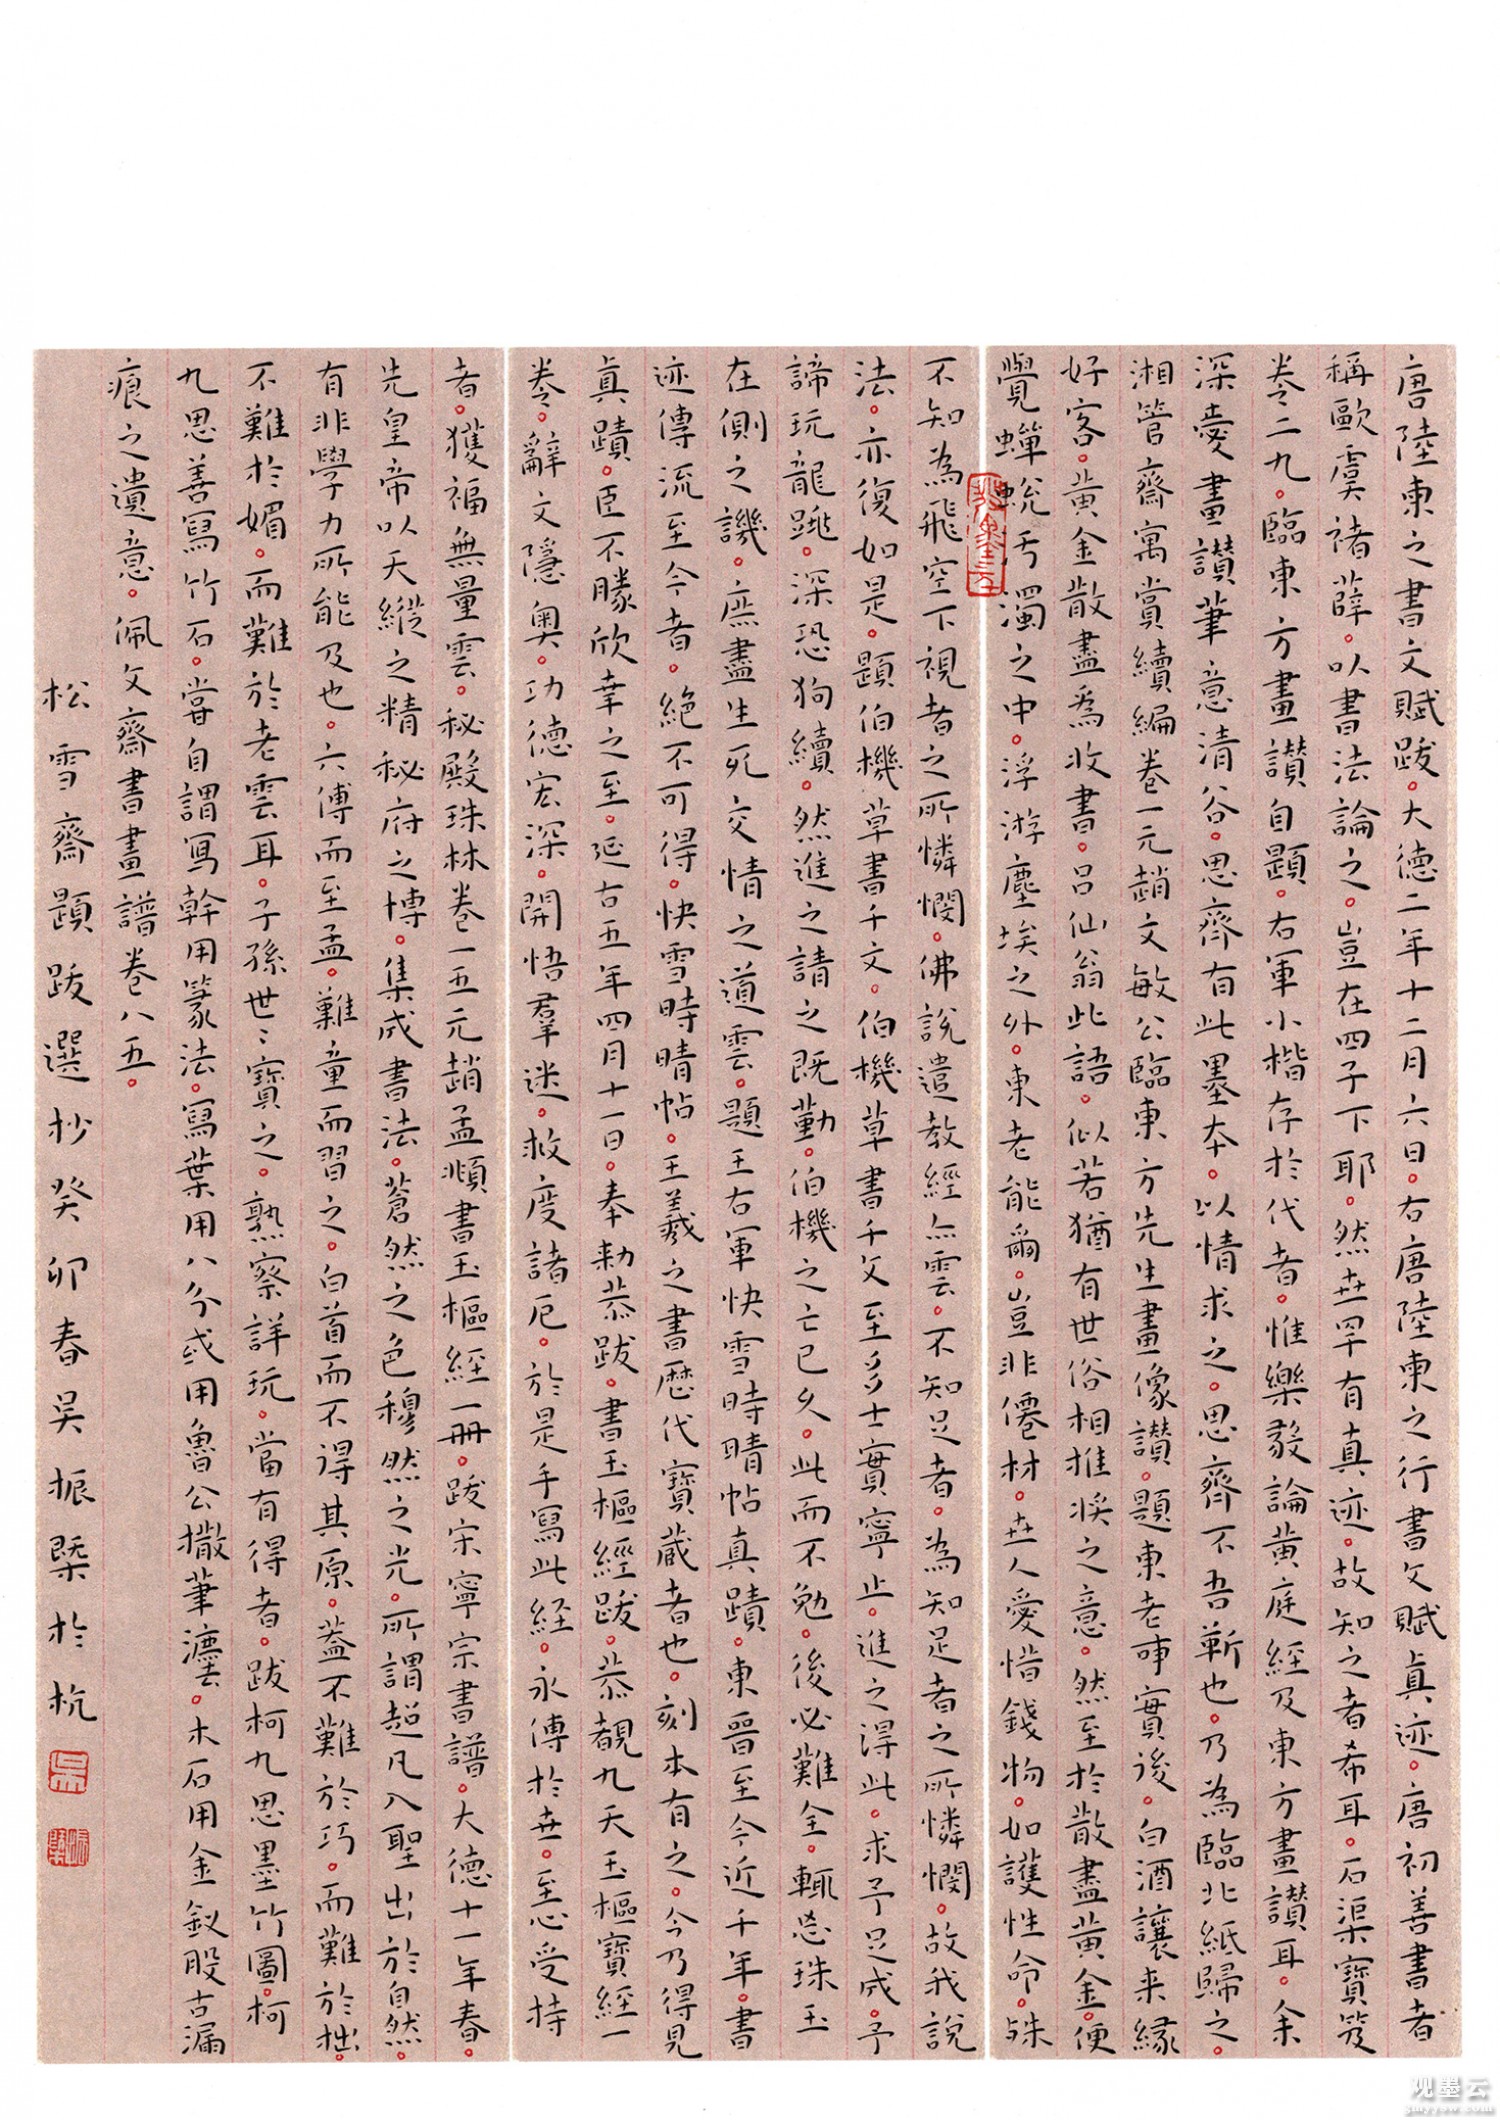 唐陸柬之書文賦跋。大德二年十二月六日。右唐陸柬之行書文賦真迹。唐初善書者
稱歐虞褚薛。以書法論之。豈在四子下耶。然世罕有真迹。故知之者希耳。石渠寶笈
卷二九。臨東方畫讚自題。右軍小楷存於代者。惟樂毅論黃庭經及東方畫讚耳。余
深愛畫讚筆意清谷。思齊有此墨本。以情求之。思齊不吾靳也。乃為臨此紙歸之。
湘管齋寓賞續編卷一元趙文敏公臨東方先生畫像讚。題東老事實後。白酒讓来緣
好客。黃金散盡為收書。呂仙翁此語。似若猶有世俗相推獎之意。然至於散盡黃金。便
覺蟬蛻污濁之中。浮游塵埃之外。東老能爾。豈非僊材。世人愛惜錢物。如護性命。殊
不知為飛空下視者之所憐憫。佛說遺教經亦雲。不知足者。為知足者之所憐憫。故我說
法。亦復如是。題伯機草書千文。伯機草書千文至多士實寧止。進之得此。求予足成。予
諦玩龍跳。深恐狗續。然進之請之既勤。伯機之亡已久。此而不勉。後必難全。輒忘珠玉
在側之譏。庶盡生死交情之道雲。題王右軍快雪時晴帖真蹟。東晉至今近千年。書
迹傳流至今者。絕不可得。快雪時晴帖。王羲之書歷代寶藏者也。刻本有之。今乃得見
真蹟。臣不勝欣幸之至。延古五年四月十一日。奉勅恭跋。書玉樞經跋。恭覩九天玉樞寶經一
卷。辭文隱奧。功德宏深。開悟羣迷。救度諸厄。於是手寫此經。永傳於世。至心受持
者。獲福無量雲。秘殿珠林卷一五元趙孟頫書玉樞經一冊。跋宋寧宗書譜。大德十一年春。
先皇帝以天縱之精秘府之博。集成書法。蒼然之色穆然之光。所謂超凡入聖出於自然。
有非學力所能及也。六傅而至孟。難童而習之。白首而不得其原。蓋不難於巧。而難於拙。
不難於媚。而難於老雲耳。子孫世〻寶之。熟察詳玩。當有得者。跋柯九思墨竹圖。柯
九思善寫竹石。嘗自謂寫幹用篆法。寫葉用八分或用魯公撇筆灋。木石用金釵股古漏
痕之遺意。佩文齋書畫譜卷八五。
松雪齋題跋選抄癸卯春吳振槩於杭
观墨云
gmyyow.com